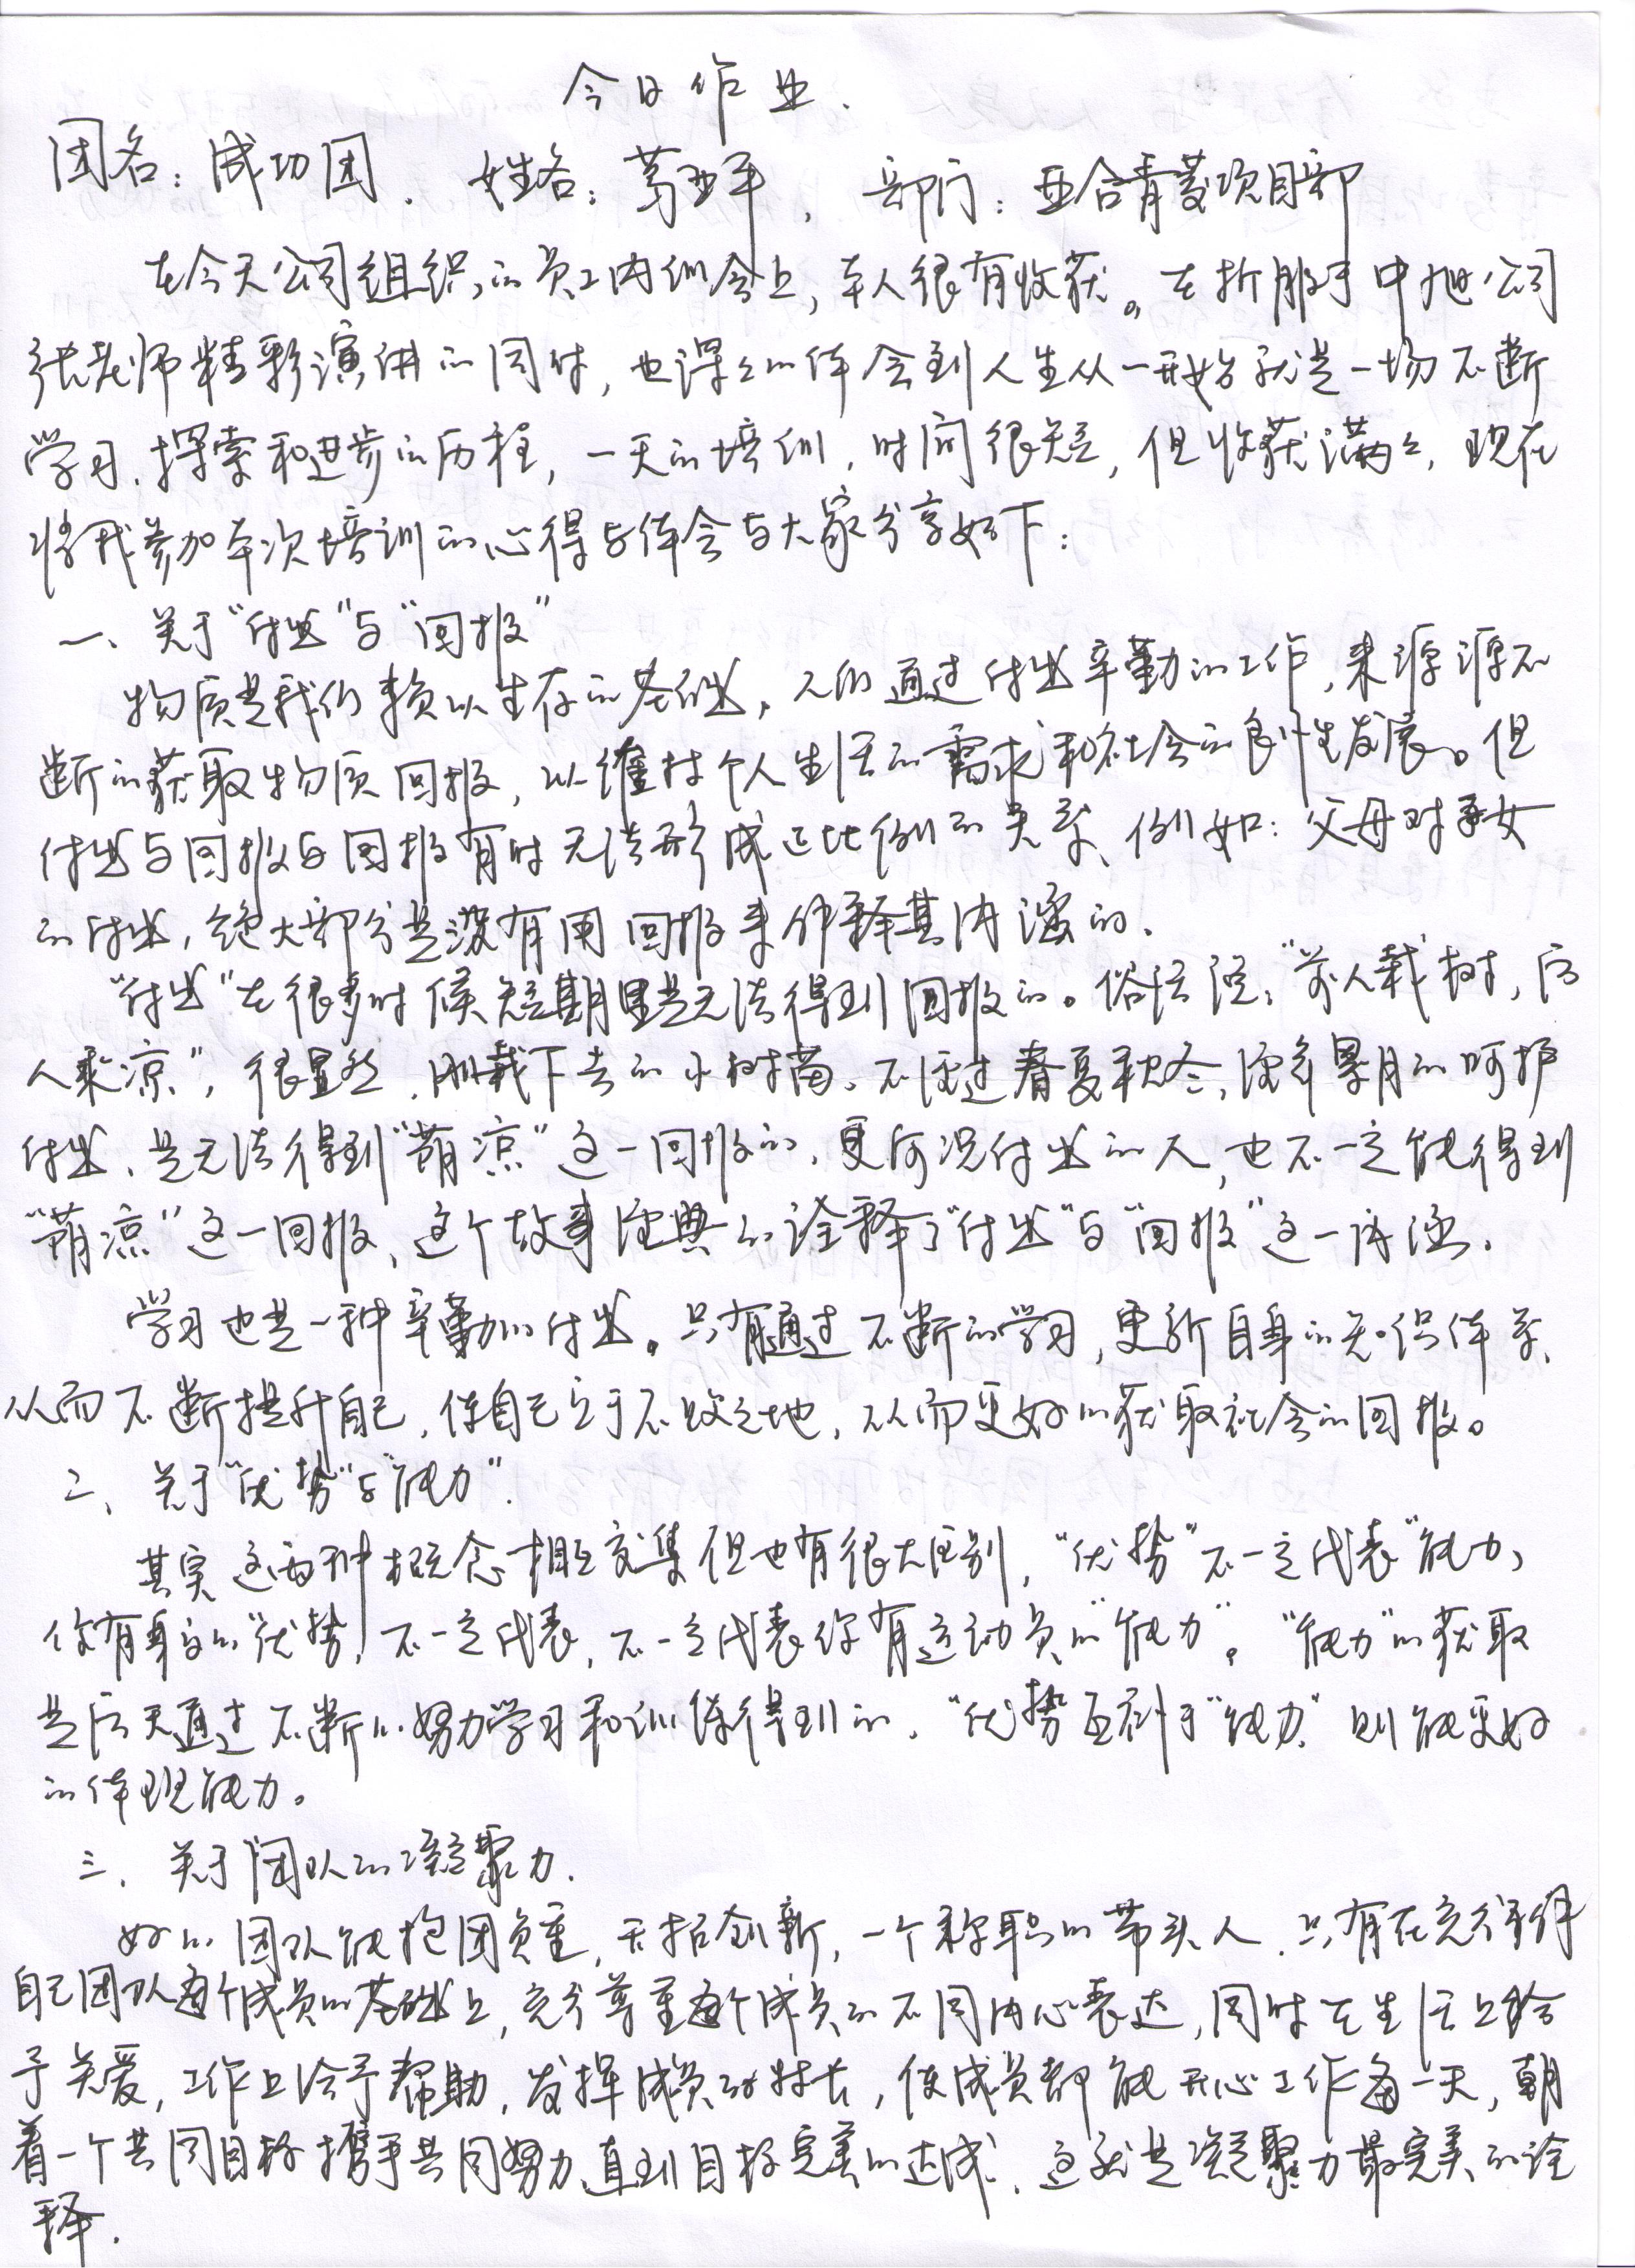 今日作业.
团名：成功团. 姓名：葛亚军, 部门：亚合青菱项目部
在今天公司组织的员工内训会上，本人很有收获。在折服于中旭公司
张老师精彩演讲的同时，也深深的体会到人生从一开始就是一场不断
学习、探索和进步的历程，一天的培训，时间很短，但收获满满，现在
将我参加本次培训的心得与体会与大家分享如下：
一、关于“付出”与“回报”
物质是我们赖以生存的基础，人们通过付出辛勤的工作，来源源不
断的获取物质回报，以维持个人生活的需求和社会的良性发展。但
付出与回报与回报有时无法形成正比例的关系、例如：父母对子女
的付出，绝大部分是没有用回报来诠释其内涵的、
“付出”在很多时候短期里是无法得到回报的。俗话说：“前人栽树，后
人乘凉”，很显然，刚栽下去的小树苗、不经过春夏秋冬，经年累月的呵护
付出、是无法得到“荫凉”这一回报的，更何况付出的人，也不一定能得到
“荫凉”这一回报、这个故事经典的诠释了“付出”与“回报”这一内涵、
学习也是一种辛勤的付出。只有通过不断的学习，更新自身的知识体系、
从而不断提升自己，使自己立于不败之地，从而更好的获取社会的回报。
二、关于“优势”与“能力”.
其实这两种概念相互交集但也有很大区别，“优势”不一定代表“能力，
你有身高的“优势，不一定代表，不一定代表你有运动员的“能力”。“能力”的获取
是后天通过不断的努力学习和训练得到的，“优势互补于“能力”则能更好
的体现能力。
三、关于团队的凝聚力.
好的团队能抱团负重，开拓创新，一个称职的带头人、只有在充分了解
自己团队每个成员的基础上，充分尊重每个成员的不同内心表达，同时在生活上给
予关爱，工作上给予帮助，发挥成员的特长，使成员都能开心工作每一天，朝
着一个共同目标携手共同努力、直到目标完美的达成、这就是凝聚力最完美的诠
释.